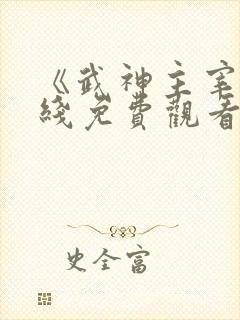 《武神主宰
綫免費觀看
史全富